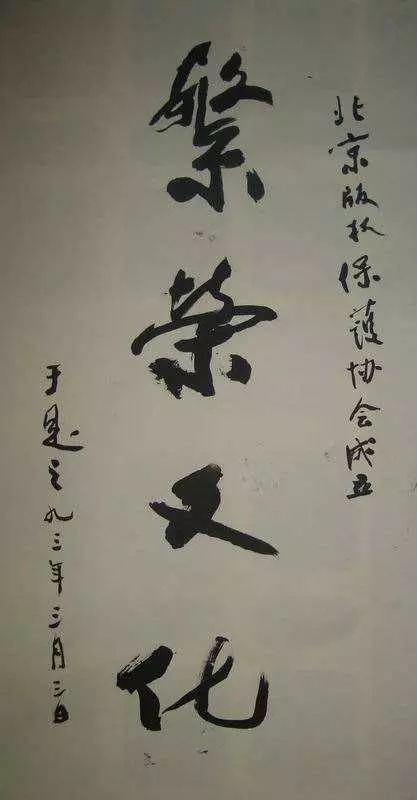 北京版权保护协会成立
繁荣文化
于是之九三年三月三日